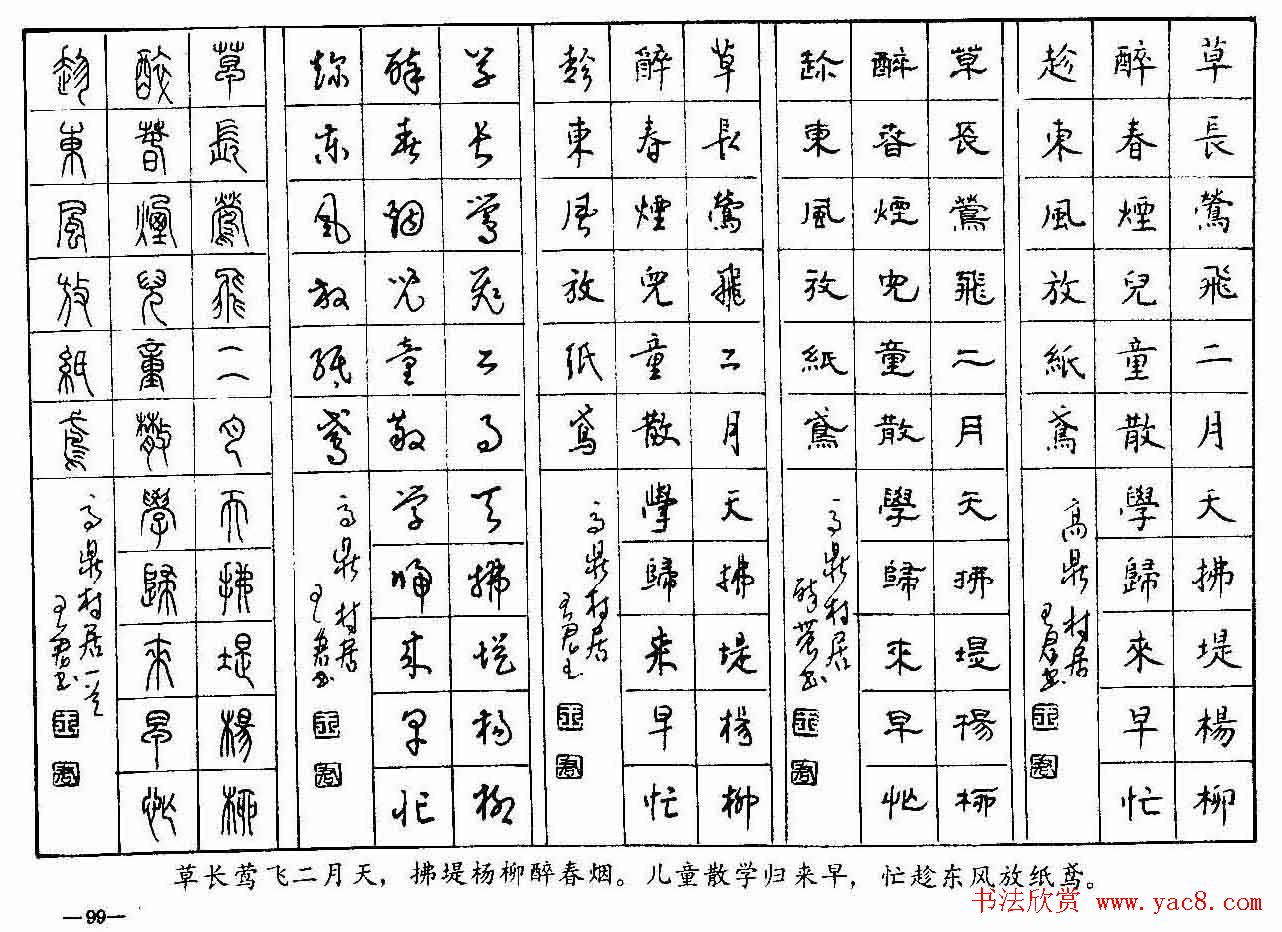 草長鶯飛二月天拂堤楊柳
醉春煙兒童散學歸來早忙
趁東風放紙鳶
高鼎村居
草長鶯飛二月天拂堤楊柳
醉春煙兒童散學歸來早忙
趁東風放紙鳶
高鼎村居
草長鶯飛二月天拂堤楊柳
醉春煙兒童散學歸來早忙
趁東風放紙鳶
高鼎村居
草長鶯飛二月天拂堤楊柳
醉春煙兒童散學歸來早忙
趁東風放紙鳶
高鼎村居
草長鶯飛二月天拂堤楊柳
醉春煙兒童散學歸來早忙
趁東風放紙鳶
高鼎村居一首
草长莺飞二月天，拂堤杨柳醉春烟。儿童散学归来早，忙趁东风放纸鸢。
—99—
书法欣赏 www.yac8.com